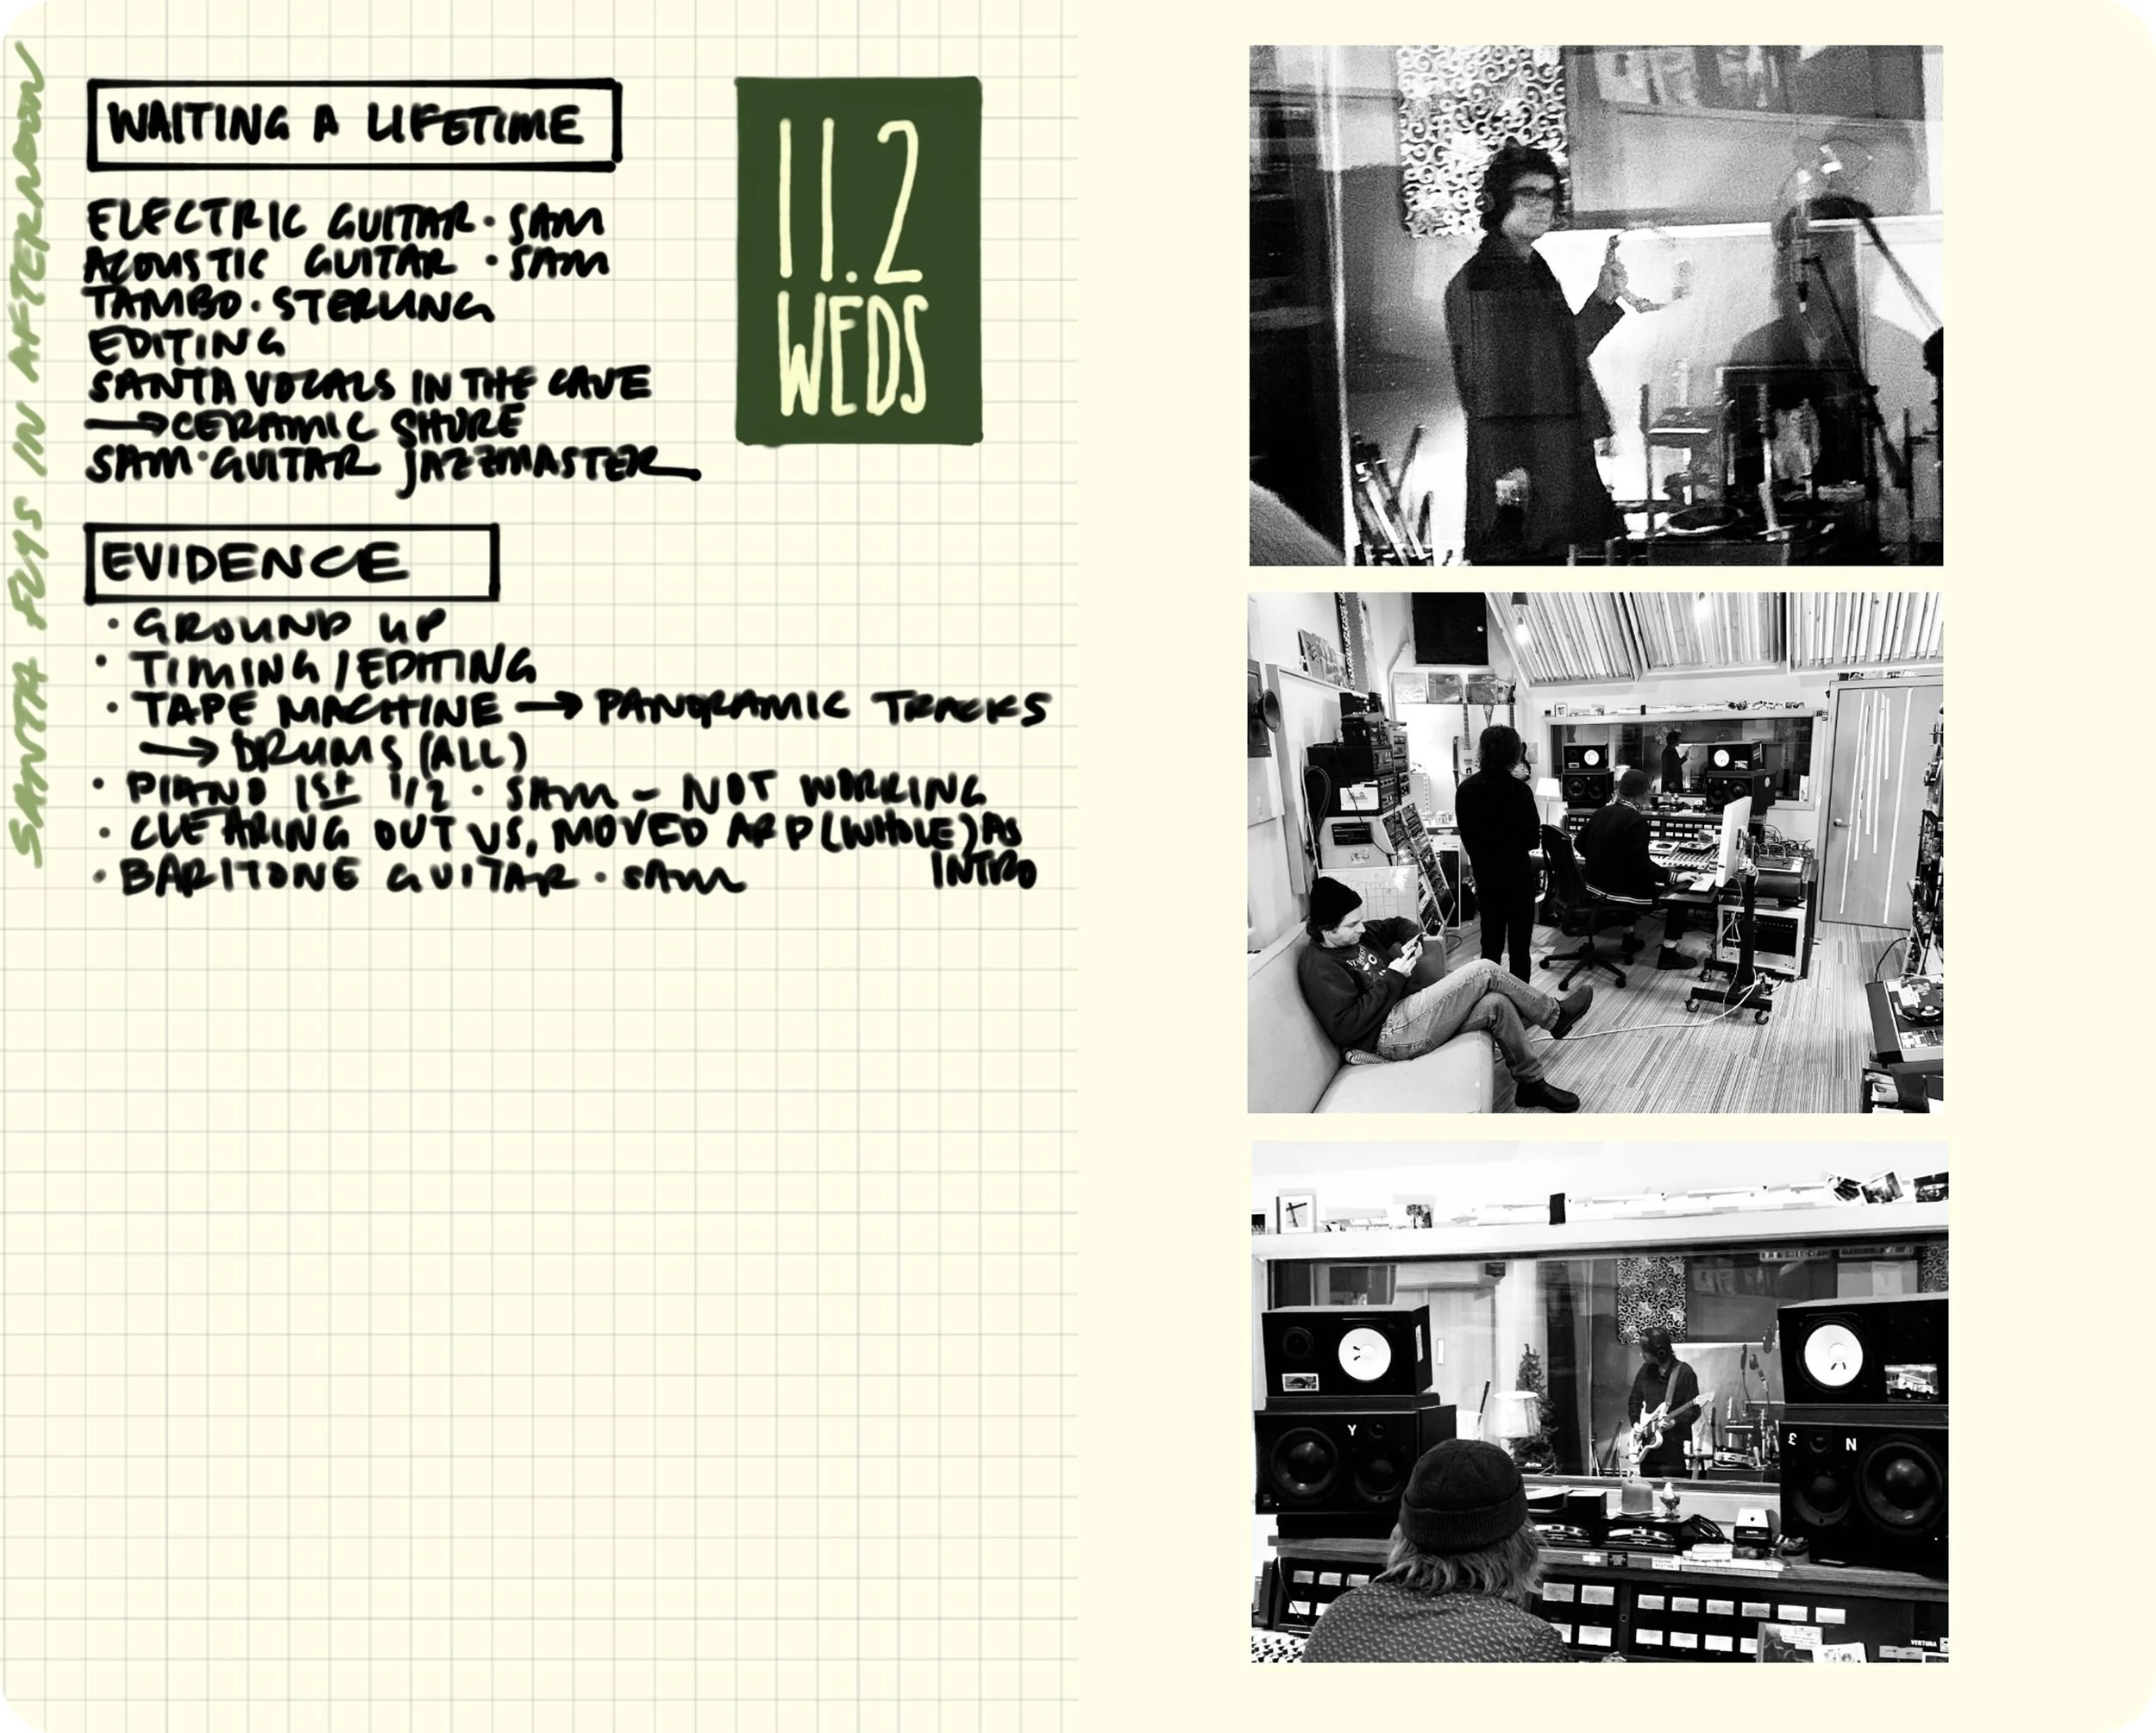 SANTA FLYS IN AFTERNOON
WAITING A LIFETIME
ELECTRIC GUITAR · SAM
ACOUSTIC GUITAR · SAM
TAMBO · STERLING
EDITING
SANTA VOCALS IN THE CAVE
→ CERAMIC SHURE
SAM · GUITAR JAZZMASTER
11.2
WEDS
EVIDENCE
· GROUND UP
· TIMING / EDITING
· TAPE MACHINE → PANORAMIC TRACKS
→ DRUMS (ALL)
· PIANO 1st 1/2 · SAM - NOT WORKING
· CLEARING OUT VS, MOVED ARP (WHOLE) AS
INTRO
· BARITONE GUITAR · SAM
Y
£ N
VENTURA